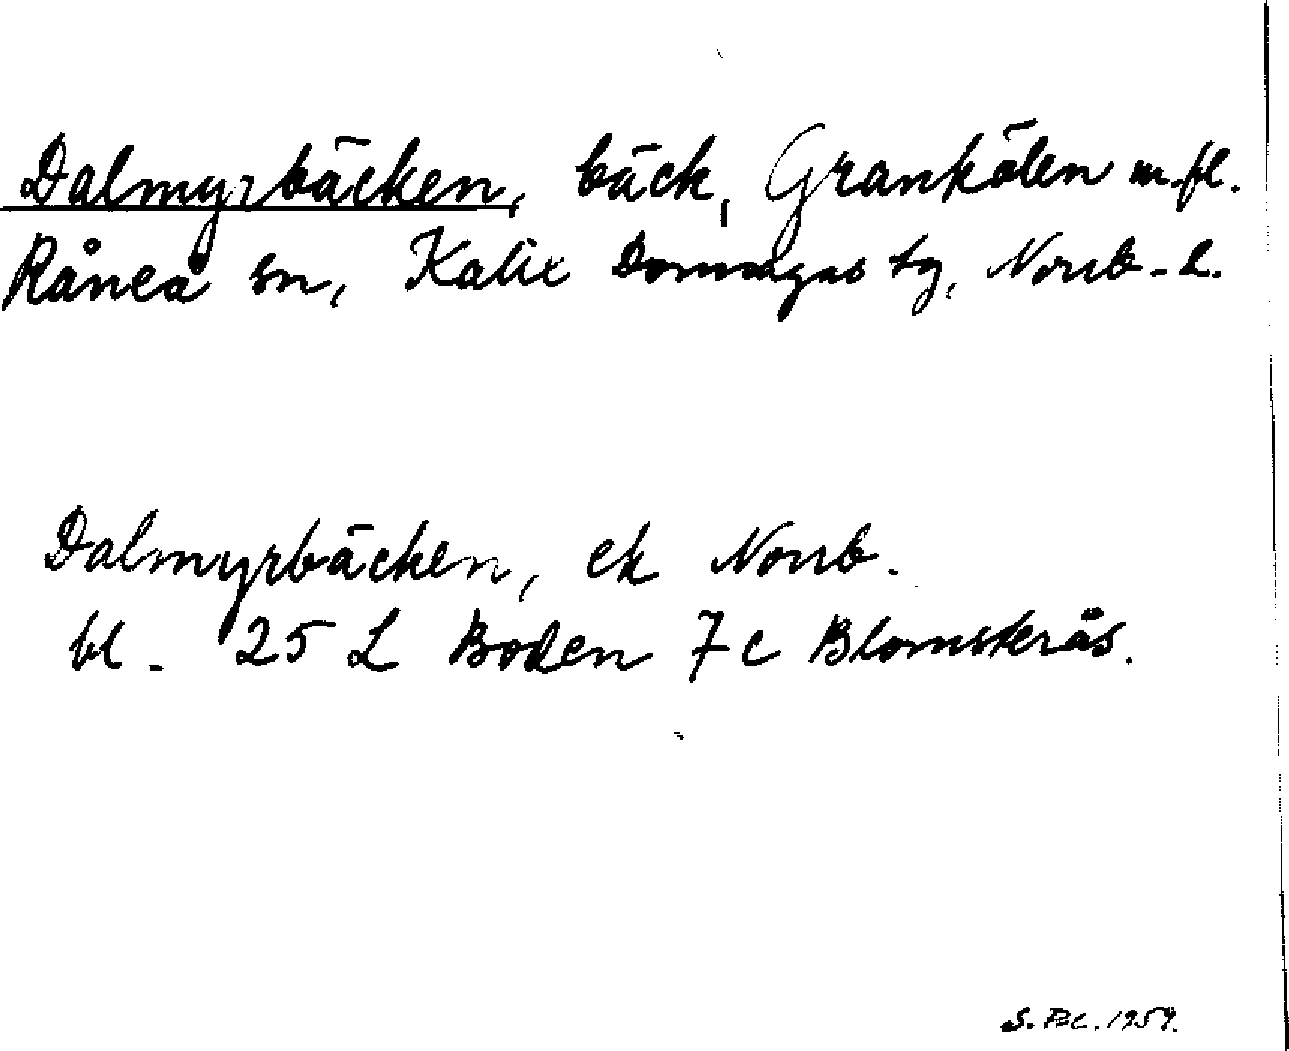 Dalmyrbäcken, bäck, Grankölen m.fl.
Råneå sn, Kalix Domsagas tg, Norrb. l.
Dalmyrbäcken, ek Norrb.
bl. 25 L Boden 7 c Blomsterås.
S. Bc. 1959.